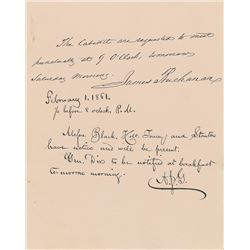 The Cabinet are requested to meet
punctually at 9 O'Clock, tomorrow
Saturday morning.
James Buchanan
February 1, 1861.
½ before 8 o'clock, P.M.
Messrs Black, Holt, Toucey and Stanton
have notice and will be present.
Gen. Dix to be notified at breakfast
to-morrow morning.